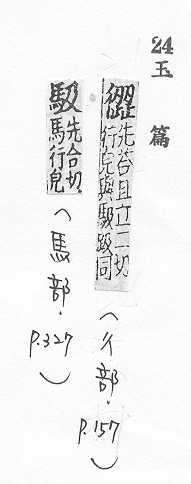 24
玉篇
先荅且立二切
行皃與馺趿同
(彳部. P.157)
馺先合切
馬行皃
(馬部. P.327)